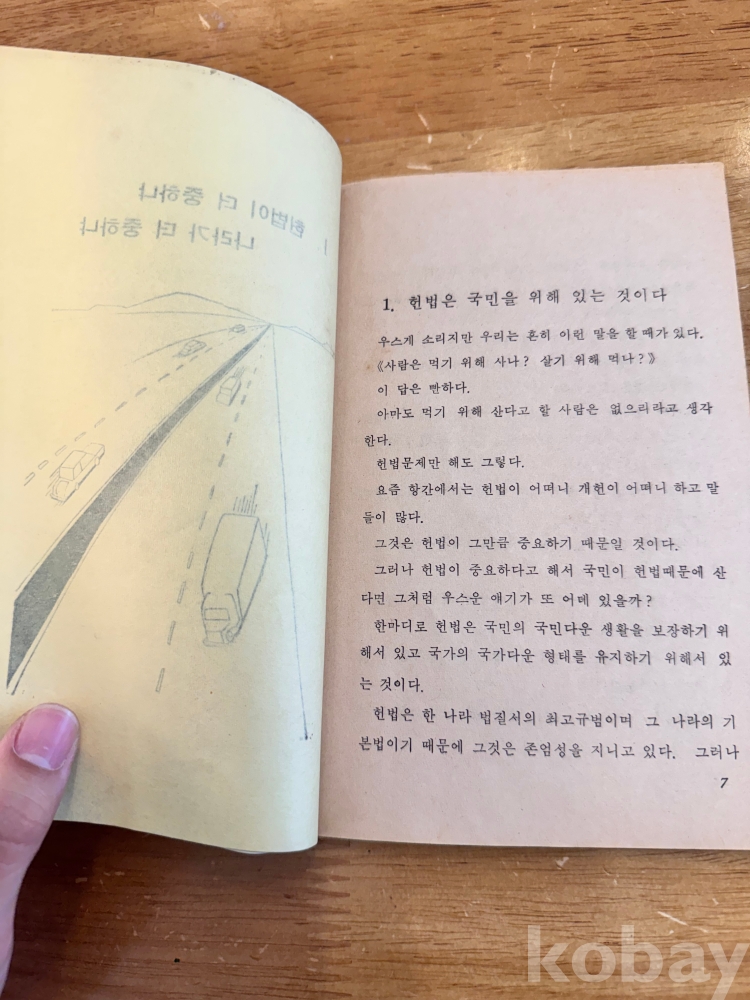 I 헌법이 더 중하냐
나라가 더 중하냐
1. 헌법은 국민을 위해 있는 것이다
우스게 소리지만 우리는 흔히 이런 말을 할 때가 있다.
《사람은 먹기 위해 사나? 살기 위해 먹나?》
이 답은 빤하다.
아마도 먹기 위해 산다고 할 사람은 없으리라고 생각
한다.
헌법문제만 해도 그렇다.
요즘 항간에서는 헌법이 어떠니 개헌이 어떠니 하고 말
들이 많다.
그것은 헌법이 그만큼 중요하기 때문일 것이다.
그러나 헌법이 중요하다고 해서 국민이 헌법때문에 산
다면 그처럼 우스운 얘기가 또 어데 있을까?
한마디로 헌법은 국민의 국민다운 생활을 보장하기 위
해서 있고 국가의 국가다운 형태를 유지하기 위해서 있
는 것이다.
헌법은 한 나라 법질서의 최고규범이며 그 나라의 기
본법이기 때문에 그것은 존엄성을 지니고 있다. 그러나
7
kobay